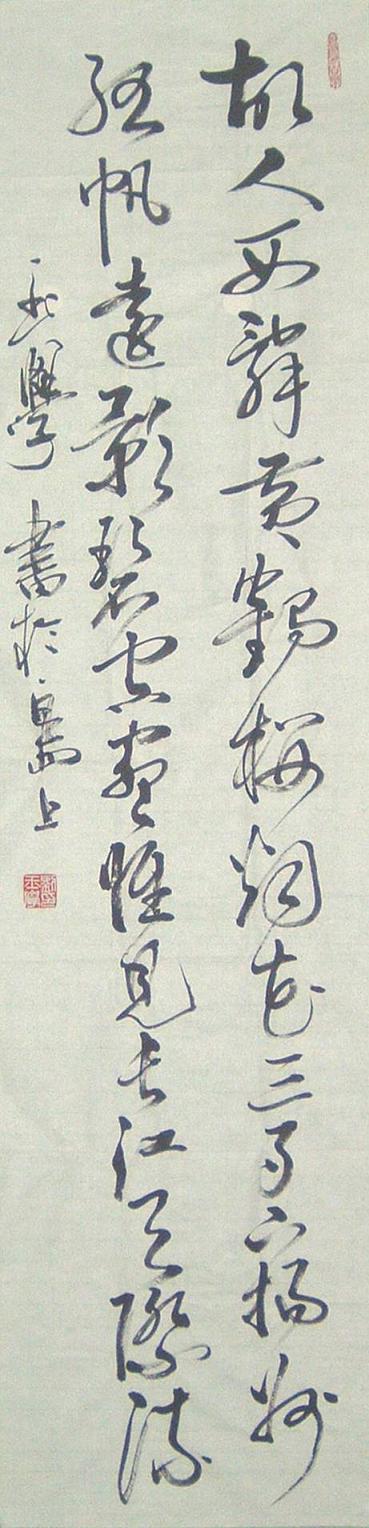 故人西辭黃鶴樓烟花三月下揚州
孤帆遠影碧空盡惟見長江天際流
書於島上